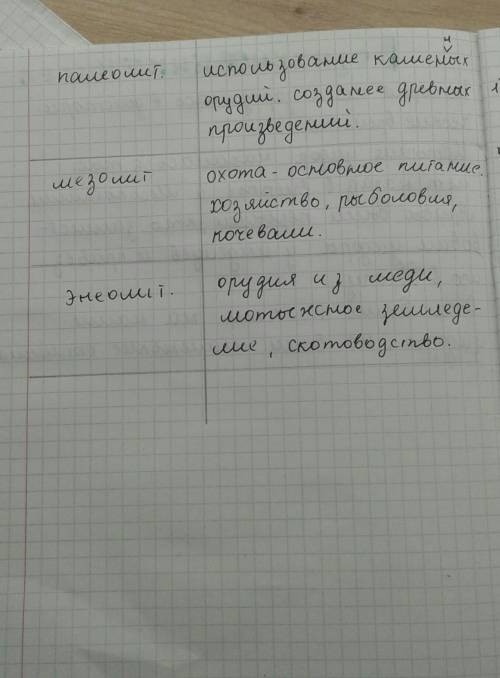 палеолит. использование каменных
орудий. создание древных
произведений.
мезолит охота - основное питание.
хозяйство, рыболовля,
кочевали.
энеолит. орудия из меди,
мотыжное земледе-
лие, скотоводство.